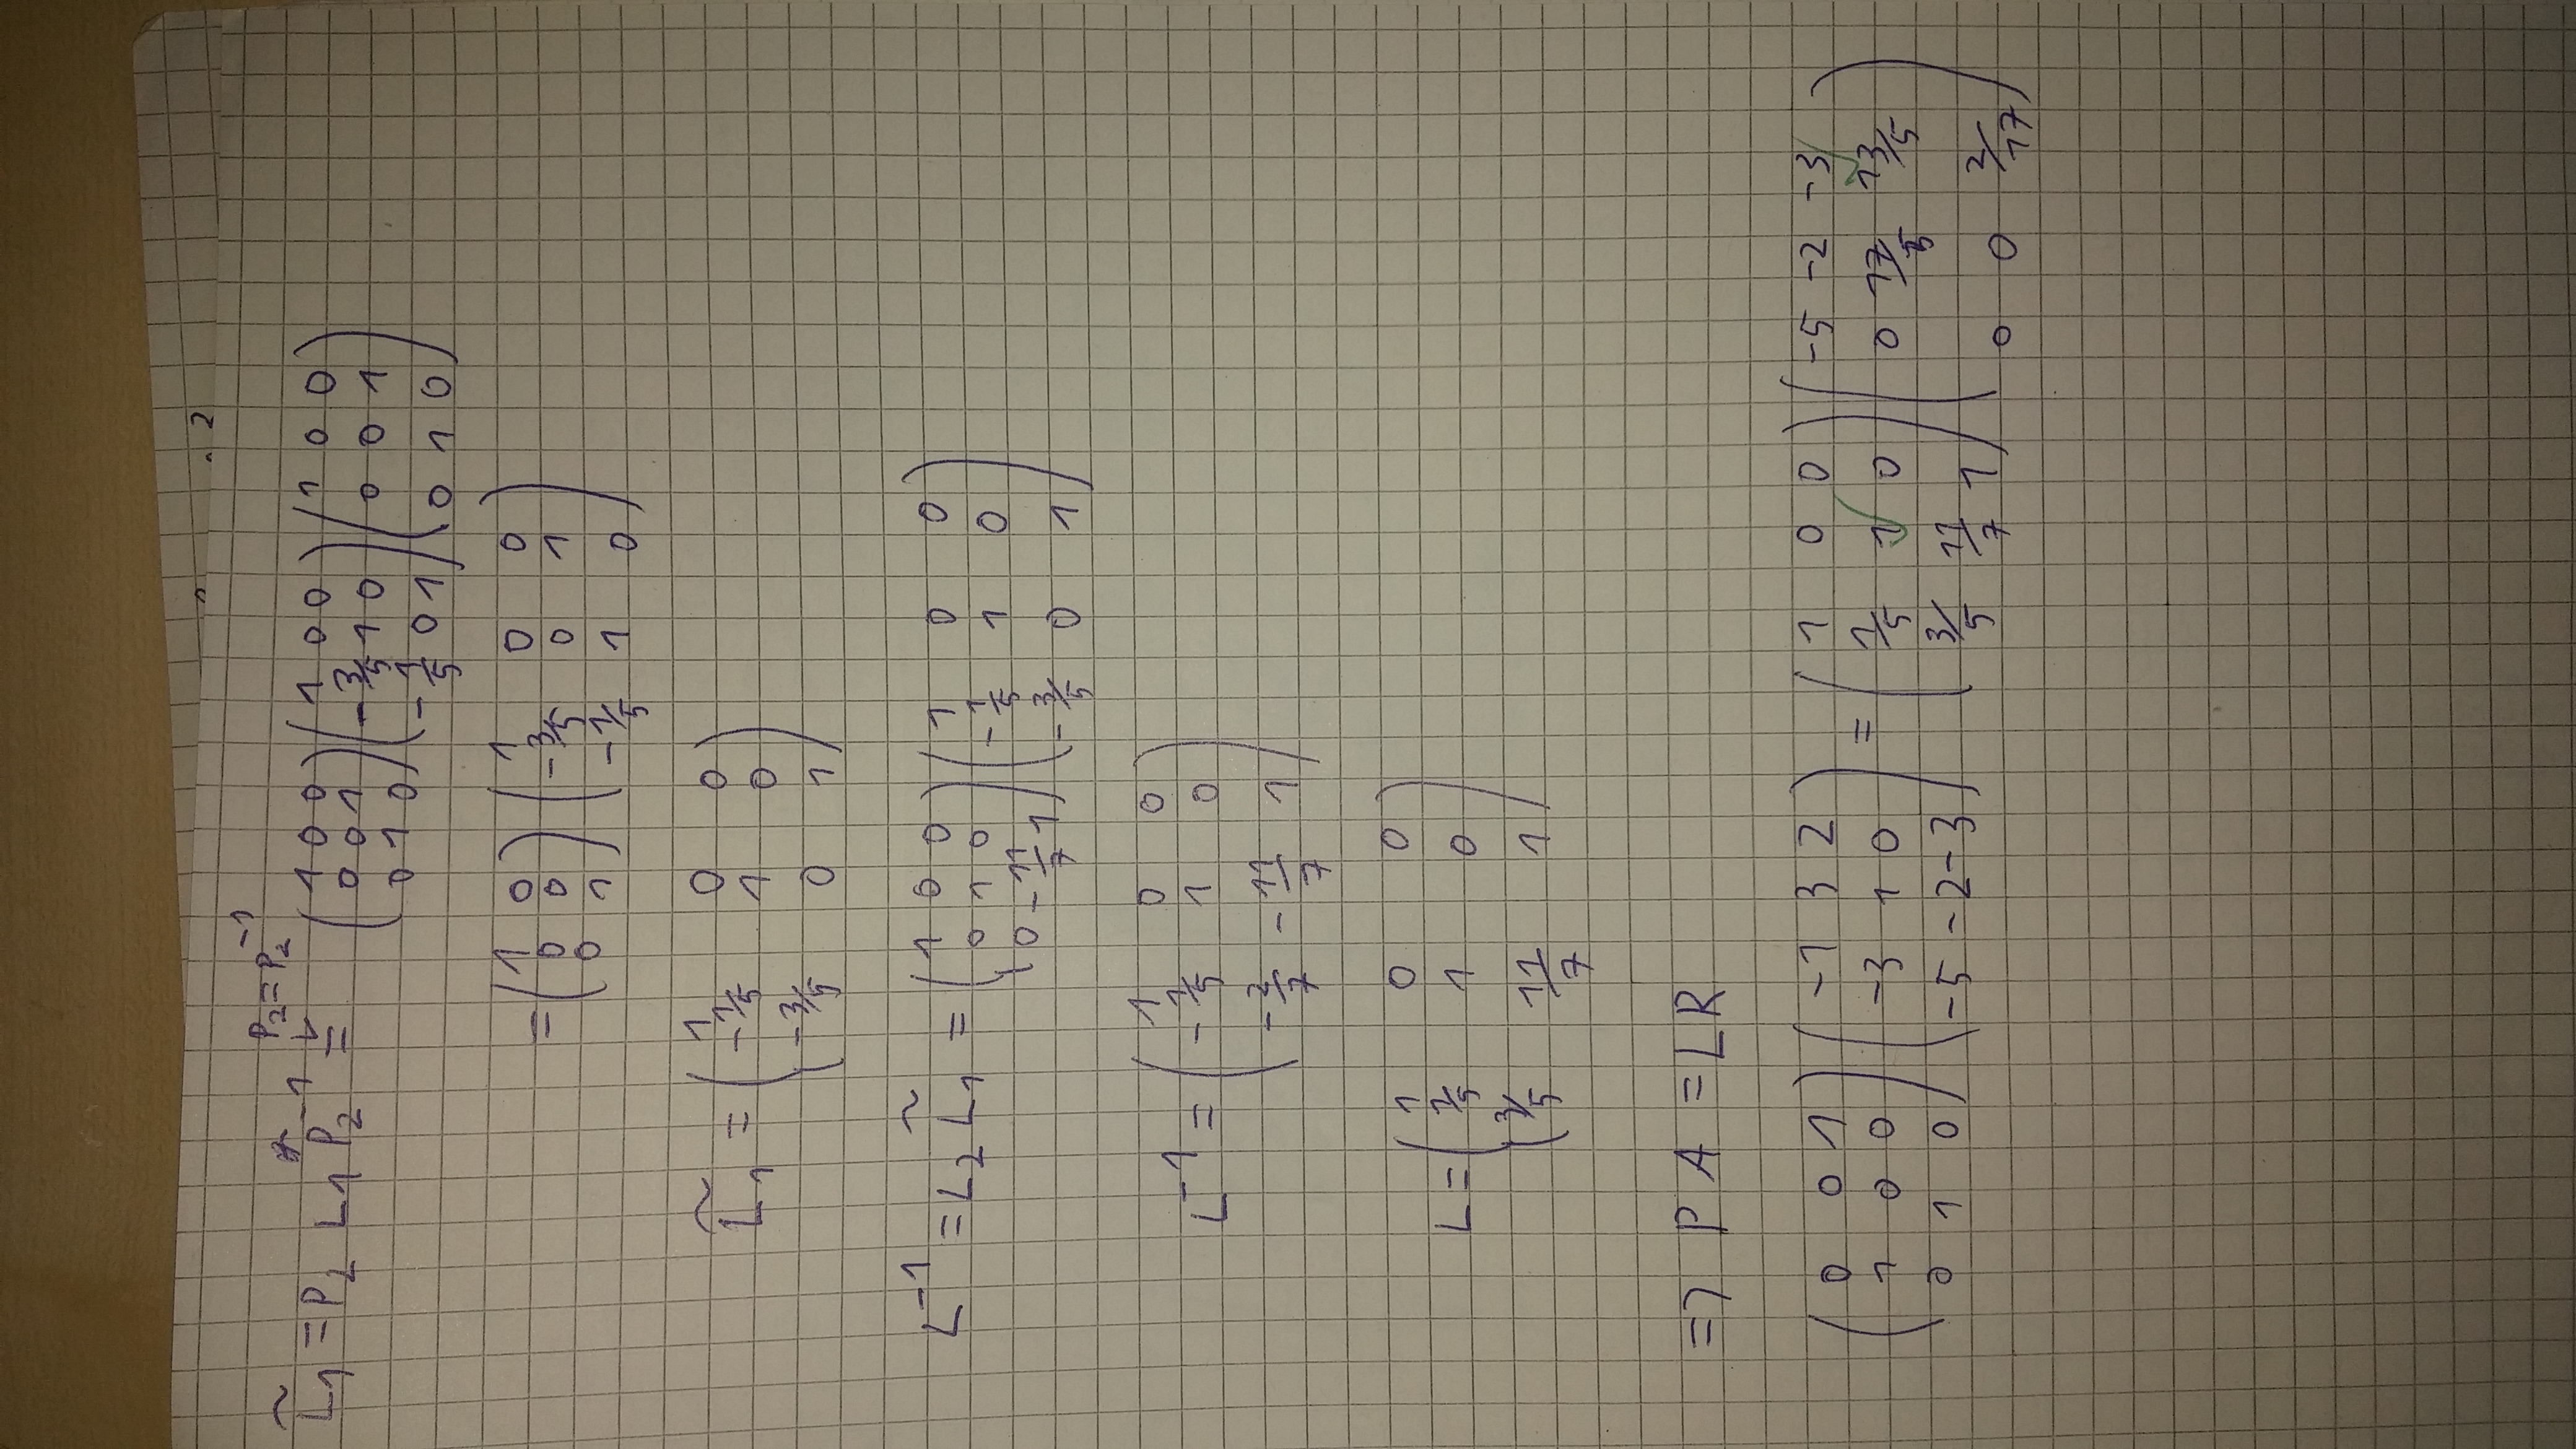 L̃₁ = P₂ L₁ P₂⁻¹ = (1 0 0; 0 0 1; 0 1 0) (1 0 0; -3/5 1 0; -1/5 0 1) (1 0 0; 0 0 1; 0 1 0)
P₂ = P₂⁻¹
= (1 0; 0 0; 0 1) (1 0 0; -3/5 0 1; -1/5 1 0)
L̃₁ = (1 0 0; -1/5 1 0; -3/5 0 1)
L⁻¹ = L₂ L̃₁ = (1 0 0; 0 1 0; 0 -11/7 1) (1 0 0; -1/5 1 0; -3/5 0 1)
L⁻¹ = (1 0 0; -1/5 1 0; -2/7 -11/7 1)
L = (1 0 0; 1/5 1 0; 3/5 11/7 1)
=> P A = L R
(0 0 1; 1 0 0; 0 1 0) (-1 3 2; -3 1 0; -5 -2 -3) = (1 0 0; 1/5 1 0; 3/5 11/7 1) (-5 -2 -3; 0 17/5 13/5; 0 0 2/17)